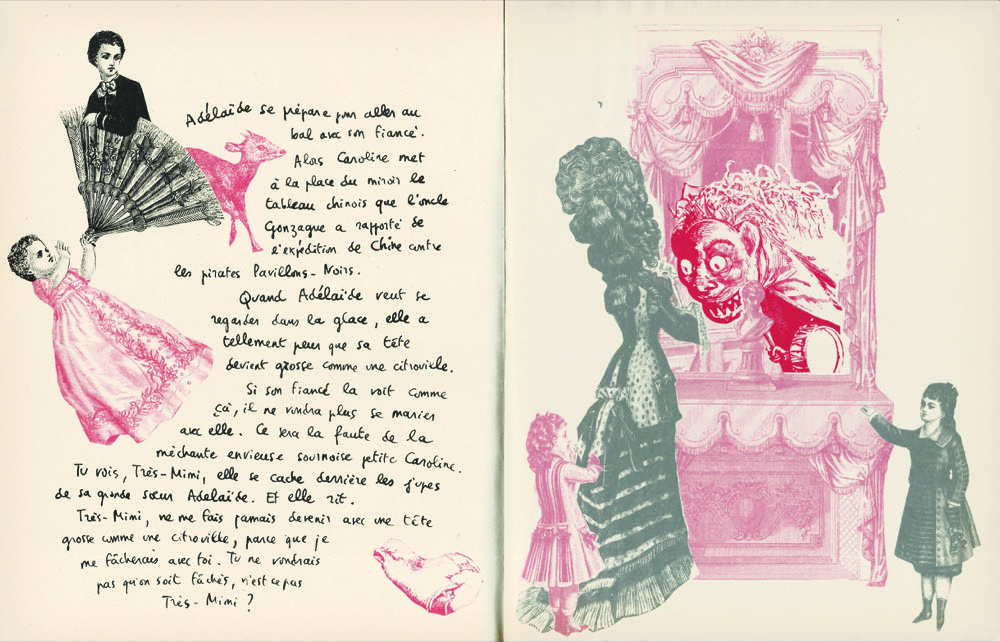 Adélaïde se prépare pour aller au
bal avec son fiancé.
Alors Caroline met
à la place du miroir le
tableau chinois que l'oncle
Gonzague a rapporté de
l'expédition de Chine contre
les pirates Pavillons-Noirs.
Quand Adélaïde veut se
regarder dans la glace, elle a
tellement peur que sa tête
devient grosse comme une citrouille.
Si son fiancé la voit comme
ça, il ne voudra plus se marier
avec elle. Ce sera la faute de la
méchante envieuse sournoise petite Caroline.
Tu vois, Très-Mimi, elle se cache derrière les jupes
de sa grande sœur Adélaïde. Et elle rit.
Très-Mimi, ne me fais jamais devenir avec une tête
grosse comme une citrouille, parce que je
me fâcherais avec toi. Tu ne voudrais
pas qu'on soit fâchés, n'est ce pas
Très-Mimi ?